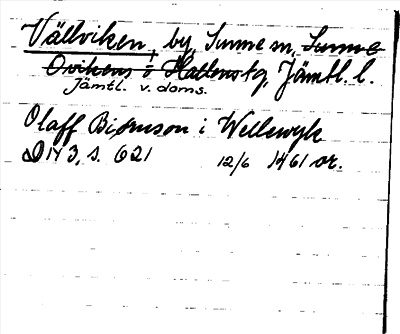 Vällviken, by, Sunne sn, Sunne
Ovikens o Hallens tg, Jämtl. l.
Jämtl. v. doms.
Olaff Biornson i Wellewyk
DN 3, s. 621 12/6 1461 or.